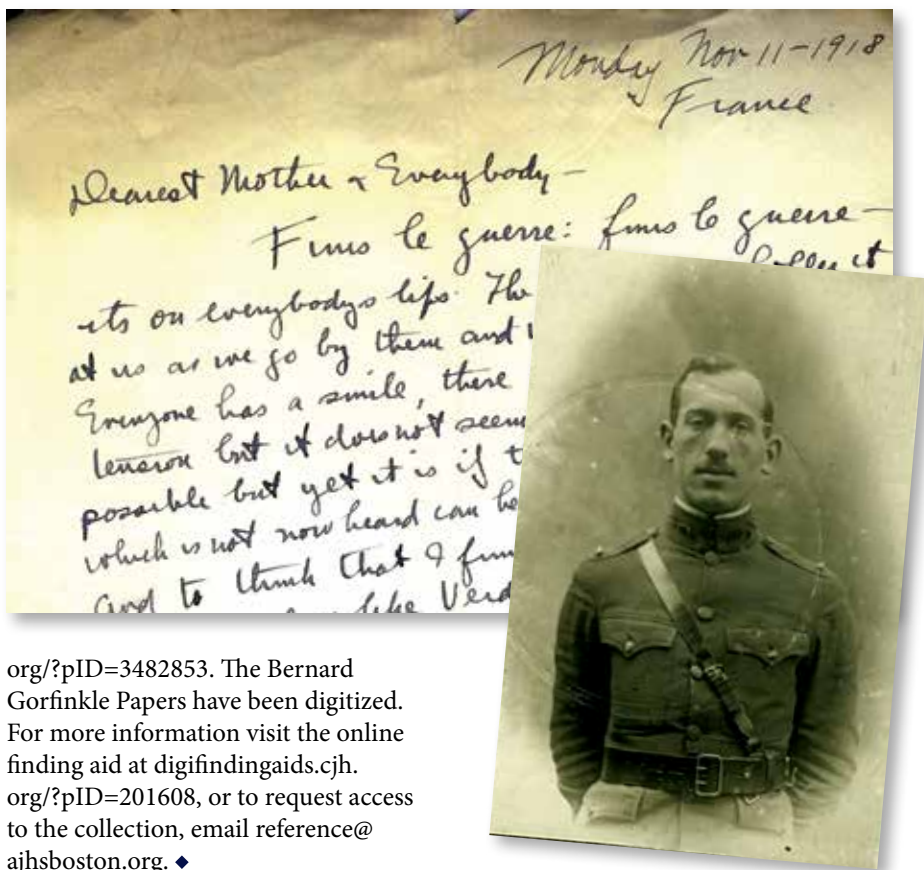 Monday Nov 11-1918
France
Dearest Mother & Everybody-
Finis le guerre: finis le guerre-
its on everybodys lips. The
it
at us as we go by them and
Everyone has a smile, there
tension but it does not seem
possible but yet it is if
which is not now heard can be
and to think that I
like Verd
org/?pID=3482853. The Bernard
Gorfinkle Papers have been digitized.
For more information visit the online
finding aid at digifindingaids.cjh.
org/?pID=201608, or to request access
to the collection, email reference@
ajhsboston.org. ◆